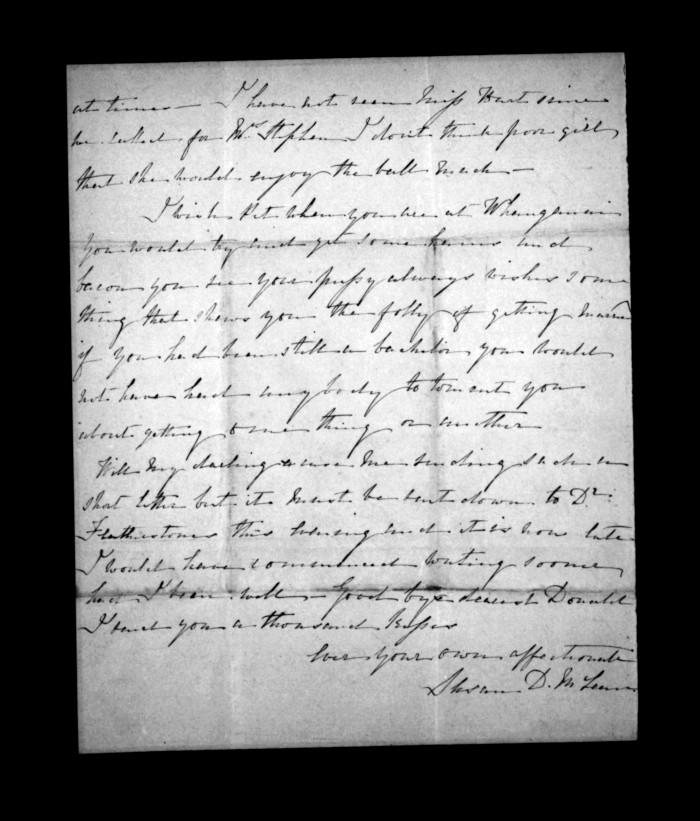 at times — I have not seen Miss Hart since
he called for Mrs Stephen I dont think poor girl
that she would enjoy the ball much —
I wish Pet when you are at Whanganui
you would try and get some hams and
bacon you see your pussy always wishes some
thing that shews you the folly of getting married
if you had been still a bachelor you would
not have had any body to torment you
about getting some thing or another
Will my darling excuse me sending such a
short letter but it must be sent down to Dr
Featherstones this evening and it is now late
I would have commenced writing sooner
had I been well — Good bye dearest Donald
I send you a thousand kisses
Ever your own affectionate
Susan D. McLean